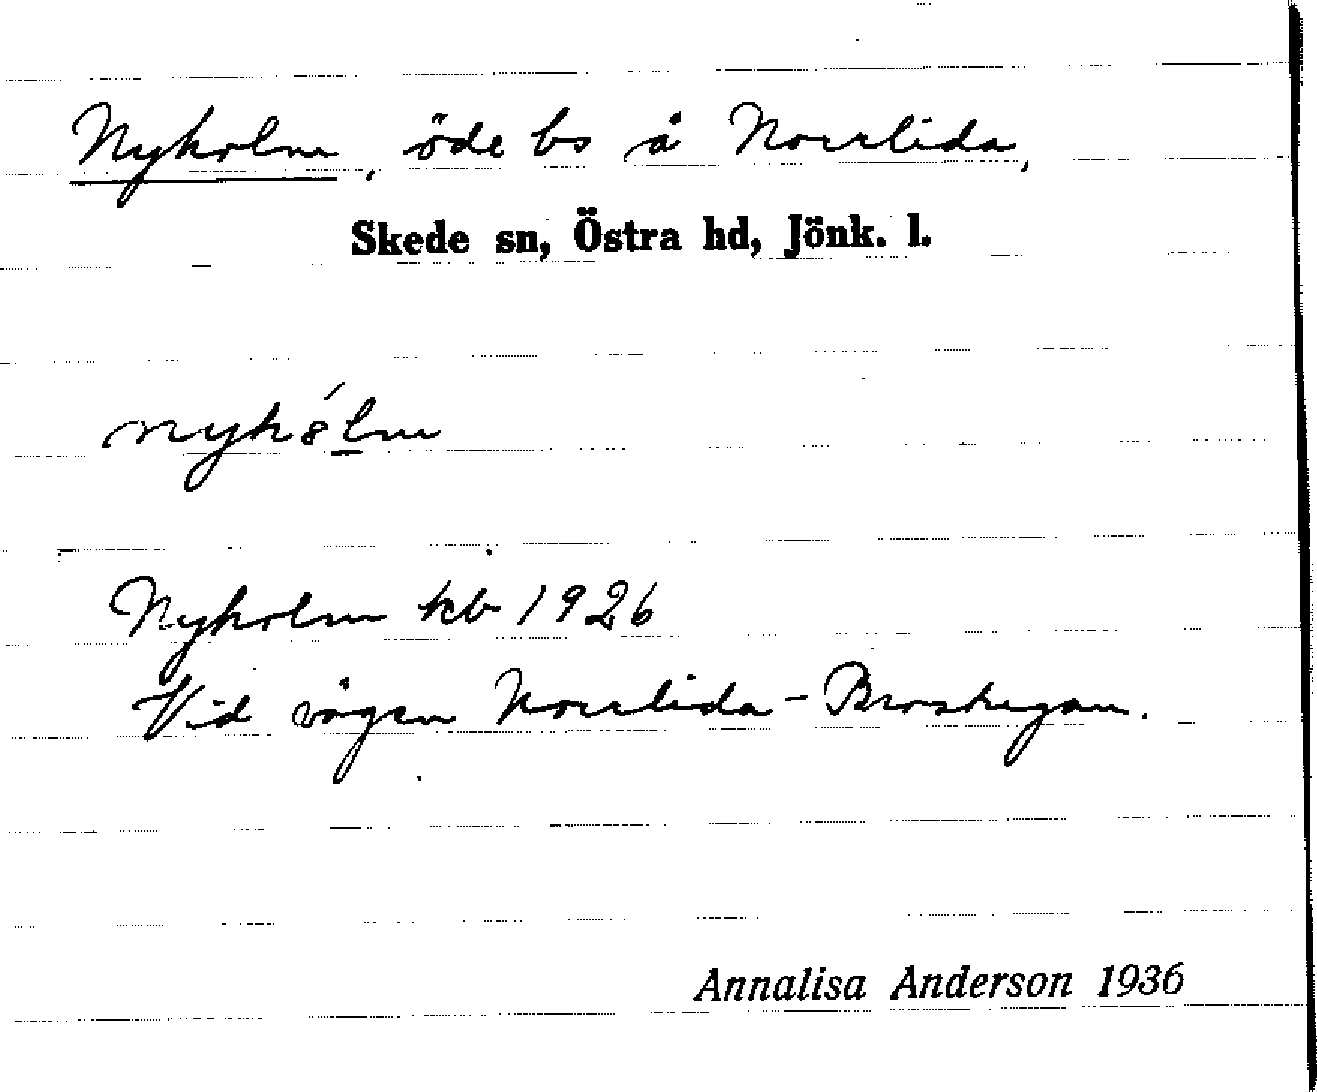 Nyholm, öde bs å Norrlida,
Skede sn, Östra hd, Jönk. l.
Nyholm kb 1926
Vid vägen Norrlida - Broskygan.
Annalisa Anderson 1936